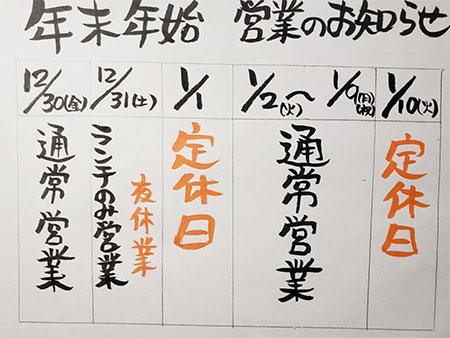 年末年始 営業のお知らせ
12/30(金)
通常営業
12/31(土)
ランチのみ営業
夜休業
1/1
定休日
1/2(火)〜1/9(月祝)
通常営業
1/10(火)
定休日